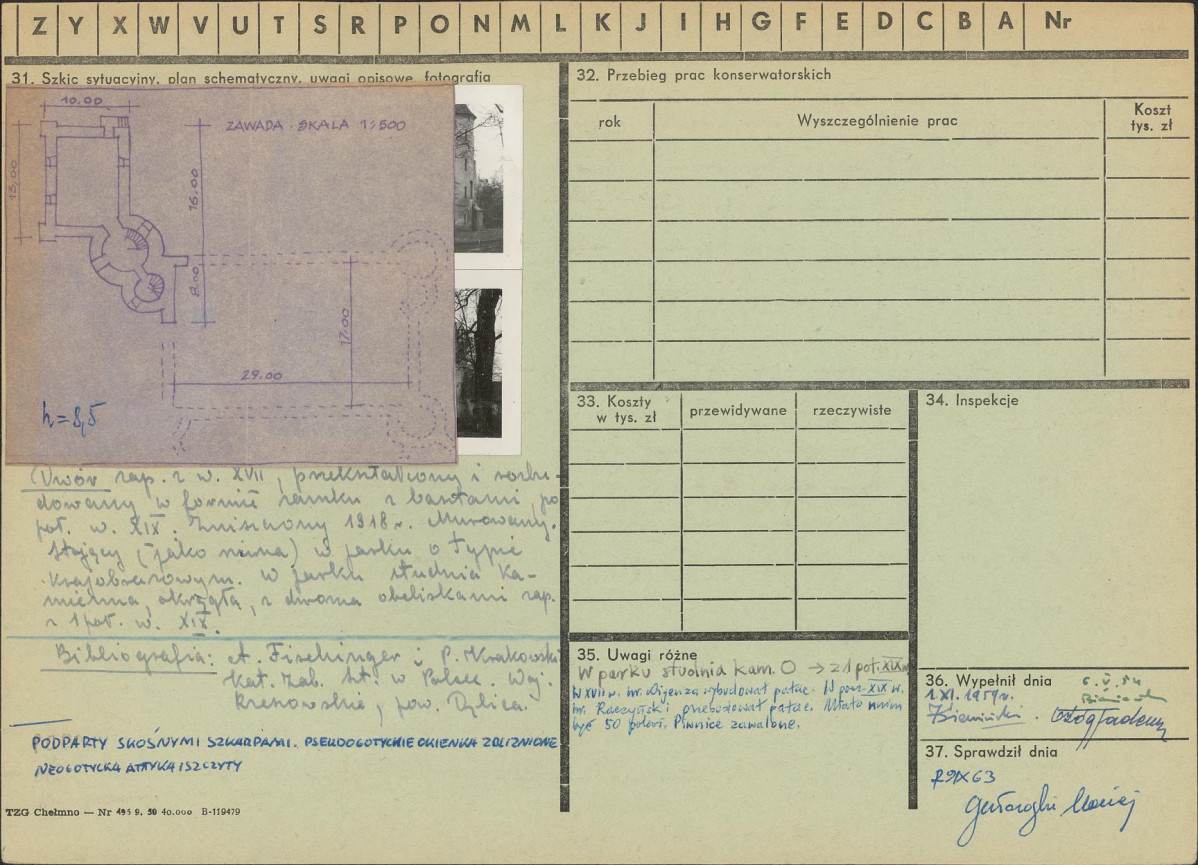 Z Y X W V U T S R P O N M L K J I H G F E D C B A Nr
31. Szkic sytuacyjny, plan schematyczny, uwagi opisowe, fotografia
10.00
ZAWADA - SKALA 1:500
13,00
16.00
8.00
17.00
29.00
h=8,5
Dwór zap. z w. XVII, przekształcony i rozbu-
dowany w formie zamku z basztami po
poł. w. XIX. Zniszczony 1918 r. Murowany.
Stojący (jako ruina) w parku o typie
krajobrazowym. W parku studnia ka-
mienna, okrągła, z dwoma obeliskami zap.
z 1 poł. w. XIX.
Bibliografia: A. Fischinger i P. Krakowski
Kat. Zab. Szt. w Polsce. Woj.
Rzeszowskie, pow. Dębica.
PODPARTY SKOŚNYMI SZKARPAMI. PSEUDOGOTYCKIE OKIENKA ZBLIŹNIONE
NEOGOTYCKA ATTYKA I SZCZYTY
TZG Chełmno — Nr 495 9. 50 40.000 B-119479
32. Przebieg prac konserwatorskich
rok
Wyszczególnienie prac
Koszt
tys. zł
33. Koszty
w tys. zł
przewidywane
rzeczywiste
34. Inspekcje
35. Uwagi różne
W parku studnia kam. O → z 1 poł. XIX w
W XVII w. hr. wybudował pałac. W poł. XIX w.
hr. Raczyński przebudował pałac. Miało w nim
być 50 pokoi. Piwnice zawalone.
36. Wypełnił dnia
6.V.54
1 XI. 1959 r.
37. Sprawdził dnia
IX 63